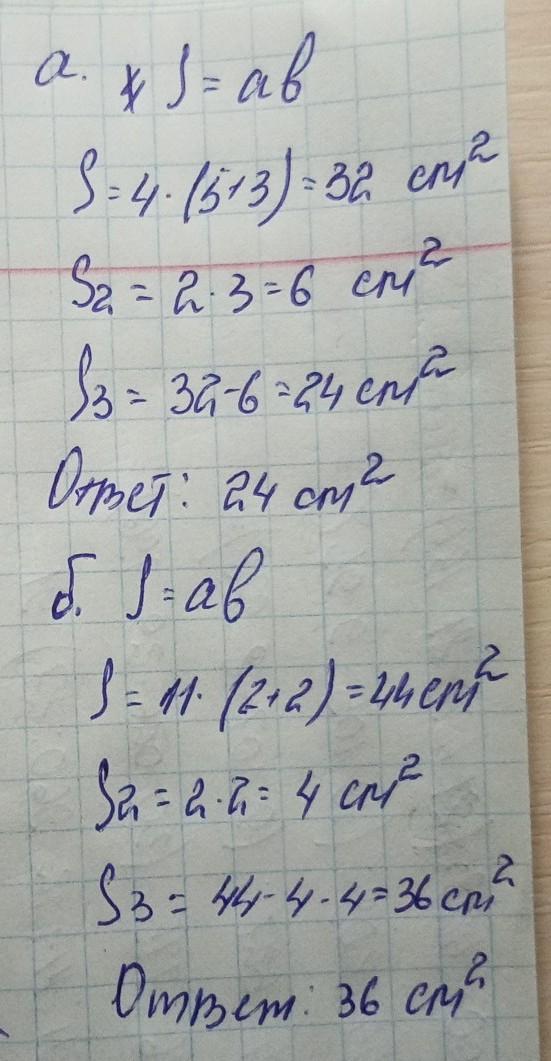 а. S = ab
S = 4 · (5+3) = 32 см²
S2 = 2 · 3 = 6 см²
S3 = 32 - 6 = 24 см²
Ответ: 24 см²
б. S = ab
S = 11 · (2+2) = 44 см²
S2 = 2 · 2 = 4 см²
S3 = 44 - 4 - 4 = 36 см²
Ответ: 36 см²